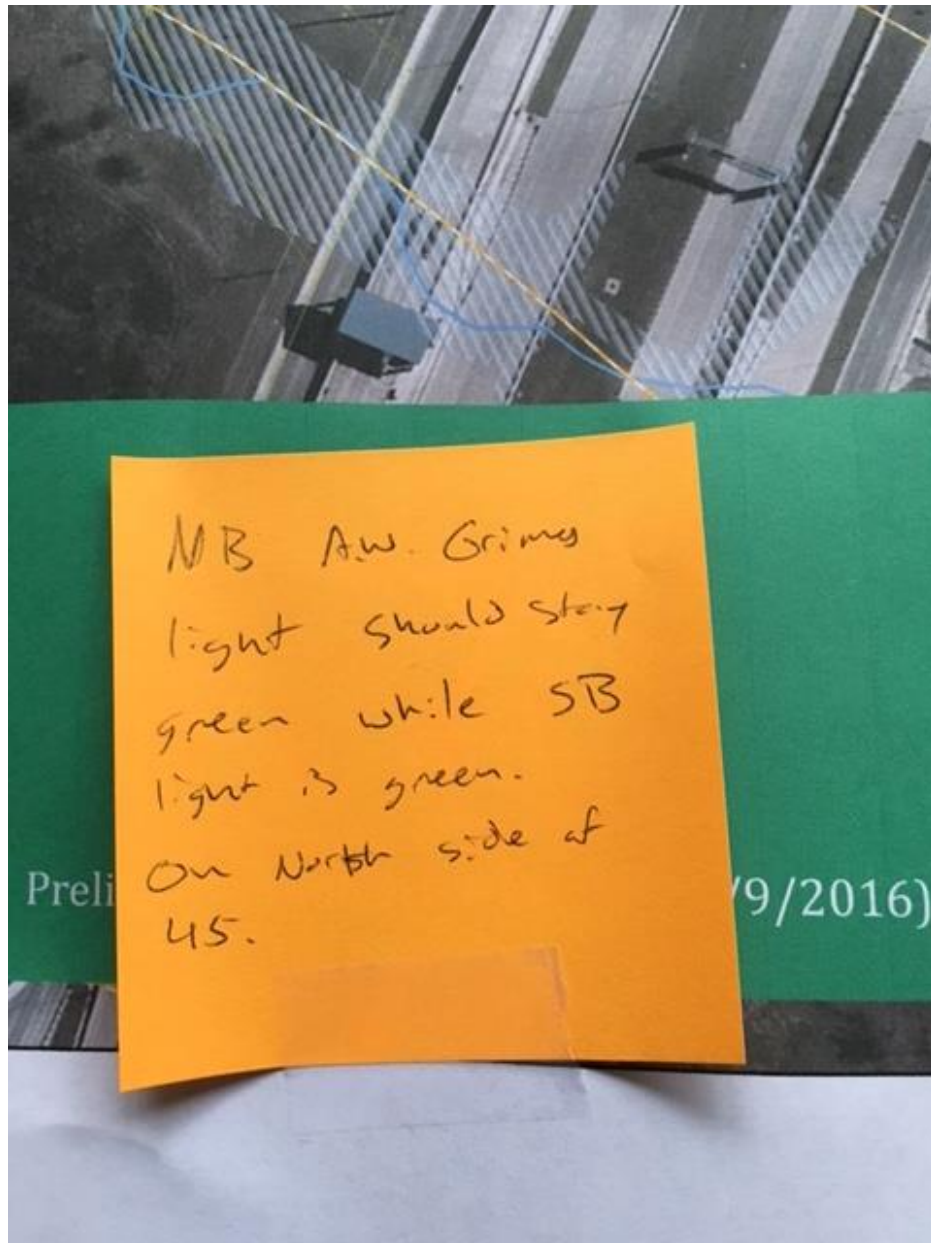 NB A.W. Grimes
light should stay
green while SB
light is green.
On North side of
45.
Preli
/9/2016)